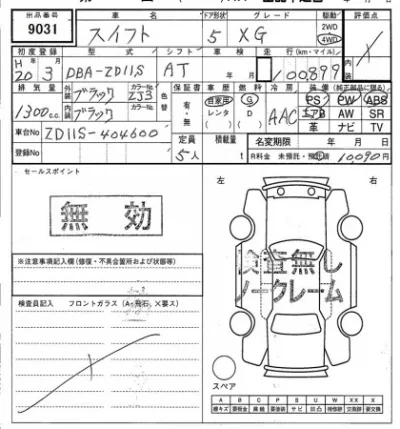 出品番号 車名 ドア形状 グレード 駆動 評価点
9031 スイフト 5 XG 2WD 4WD
初度登録 型式 シフト 車検 走行(km・マイル) 内装
H20年3月 DBA-ZD11S AT 年 月 100,899
排気量 外装 カラーNo. 内装 カラーNo. 保証書 車歴 燃料 冷房 装備(純正部品に限る)
1300cc ブラック ZJ3 ブラック 色替 有・無 自家用 レンタ ( ) G D ( ) AAC PS PW ABS
エアB AW SR
革 ナビ TV
車台No. ZD11S-404600 定員 積載量 名変期限 年 月 日
登録No. 5人 t R料金 未預託・預託 10090円
セールスポイント 左 右
無効
※注意事項記入欄(修復・不具合箇所および状態等)
検査無し
ノークレーム
検査員記入 フロントガラス(A・飛石、X要ス)
スペア
A B C P S U W X XX